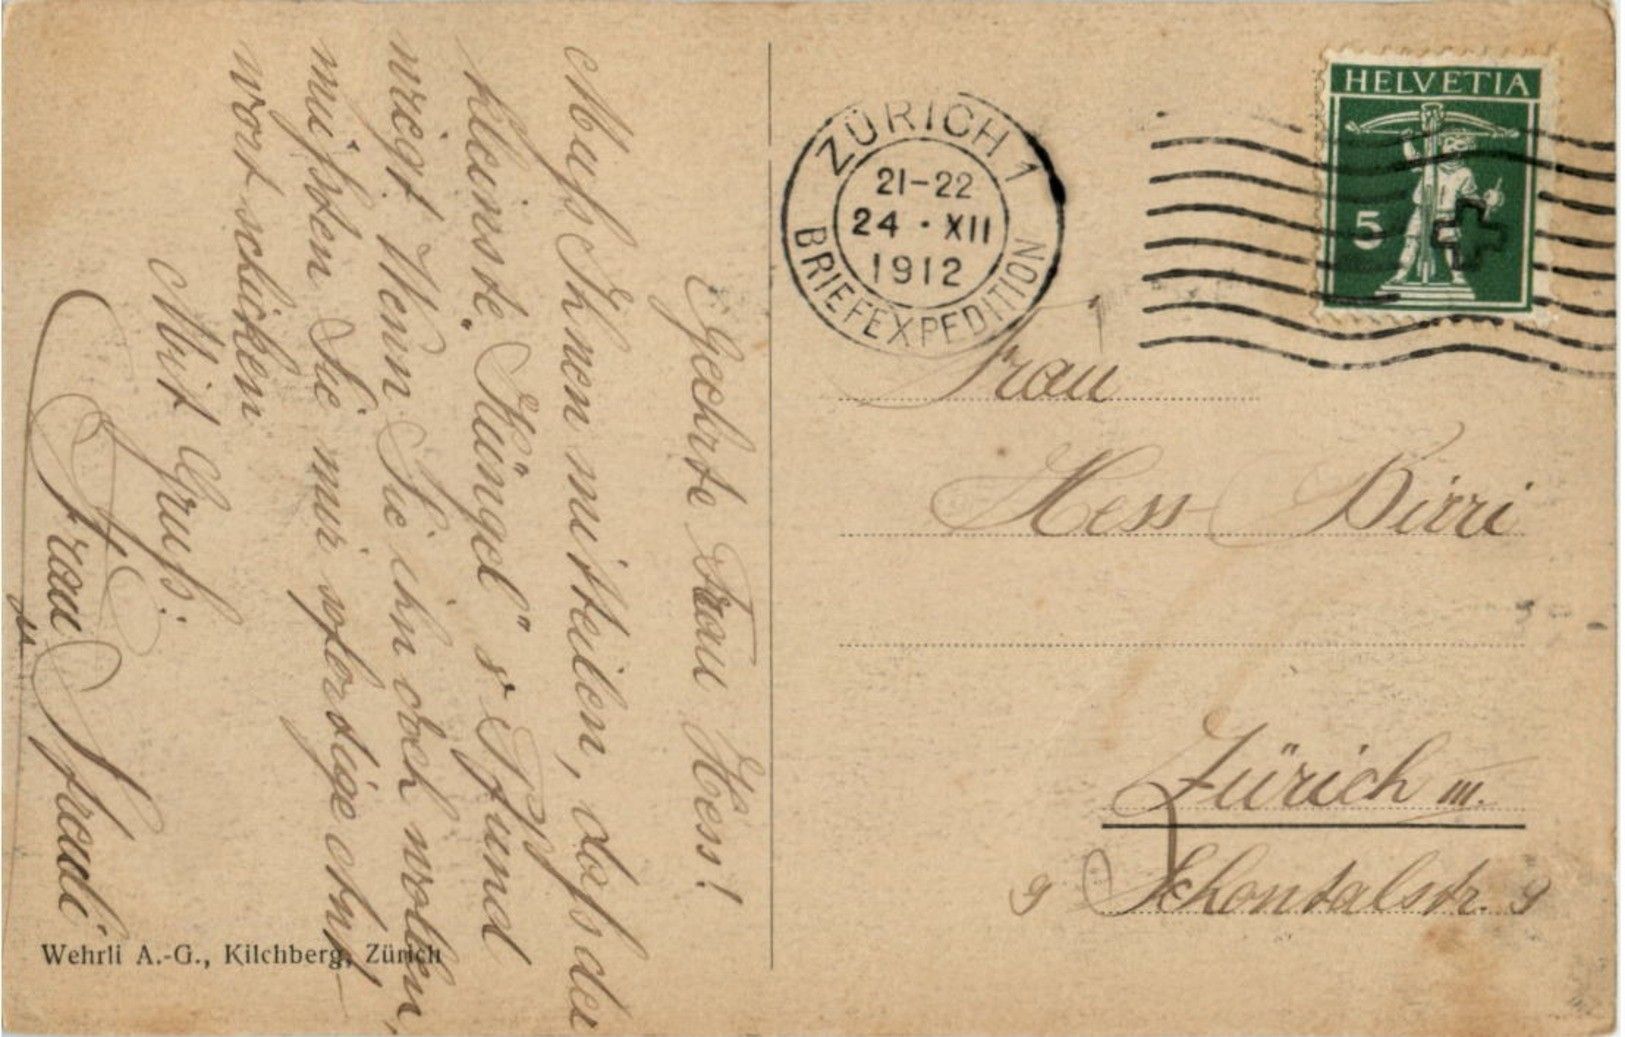 Geehrte Frau Hess!
Muß Ihnen mitteilen, daß der
kleinste „Küngel" 8 Pfund
wiegt. Wenn Sie ihn doch wollen,
müßten Sie mir sofortige Ant-
wort schicken
Mit Gruß:
Frau
Wehrli A.-G., Kilchberg, Zürich
ZÜRICH 1
21-22
24 · XII
1912
BRIEFEXPEDITION
HELVETIA
5
Frau
Hess-Birri
Zürich III.
9 Schöntalstr. 9